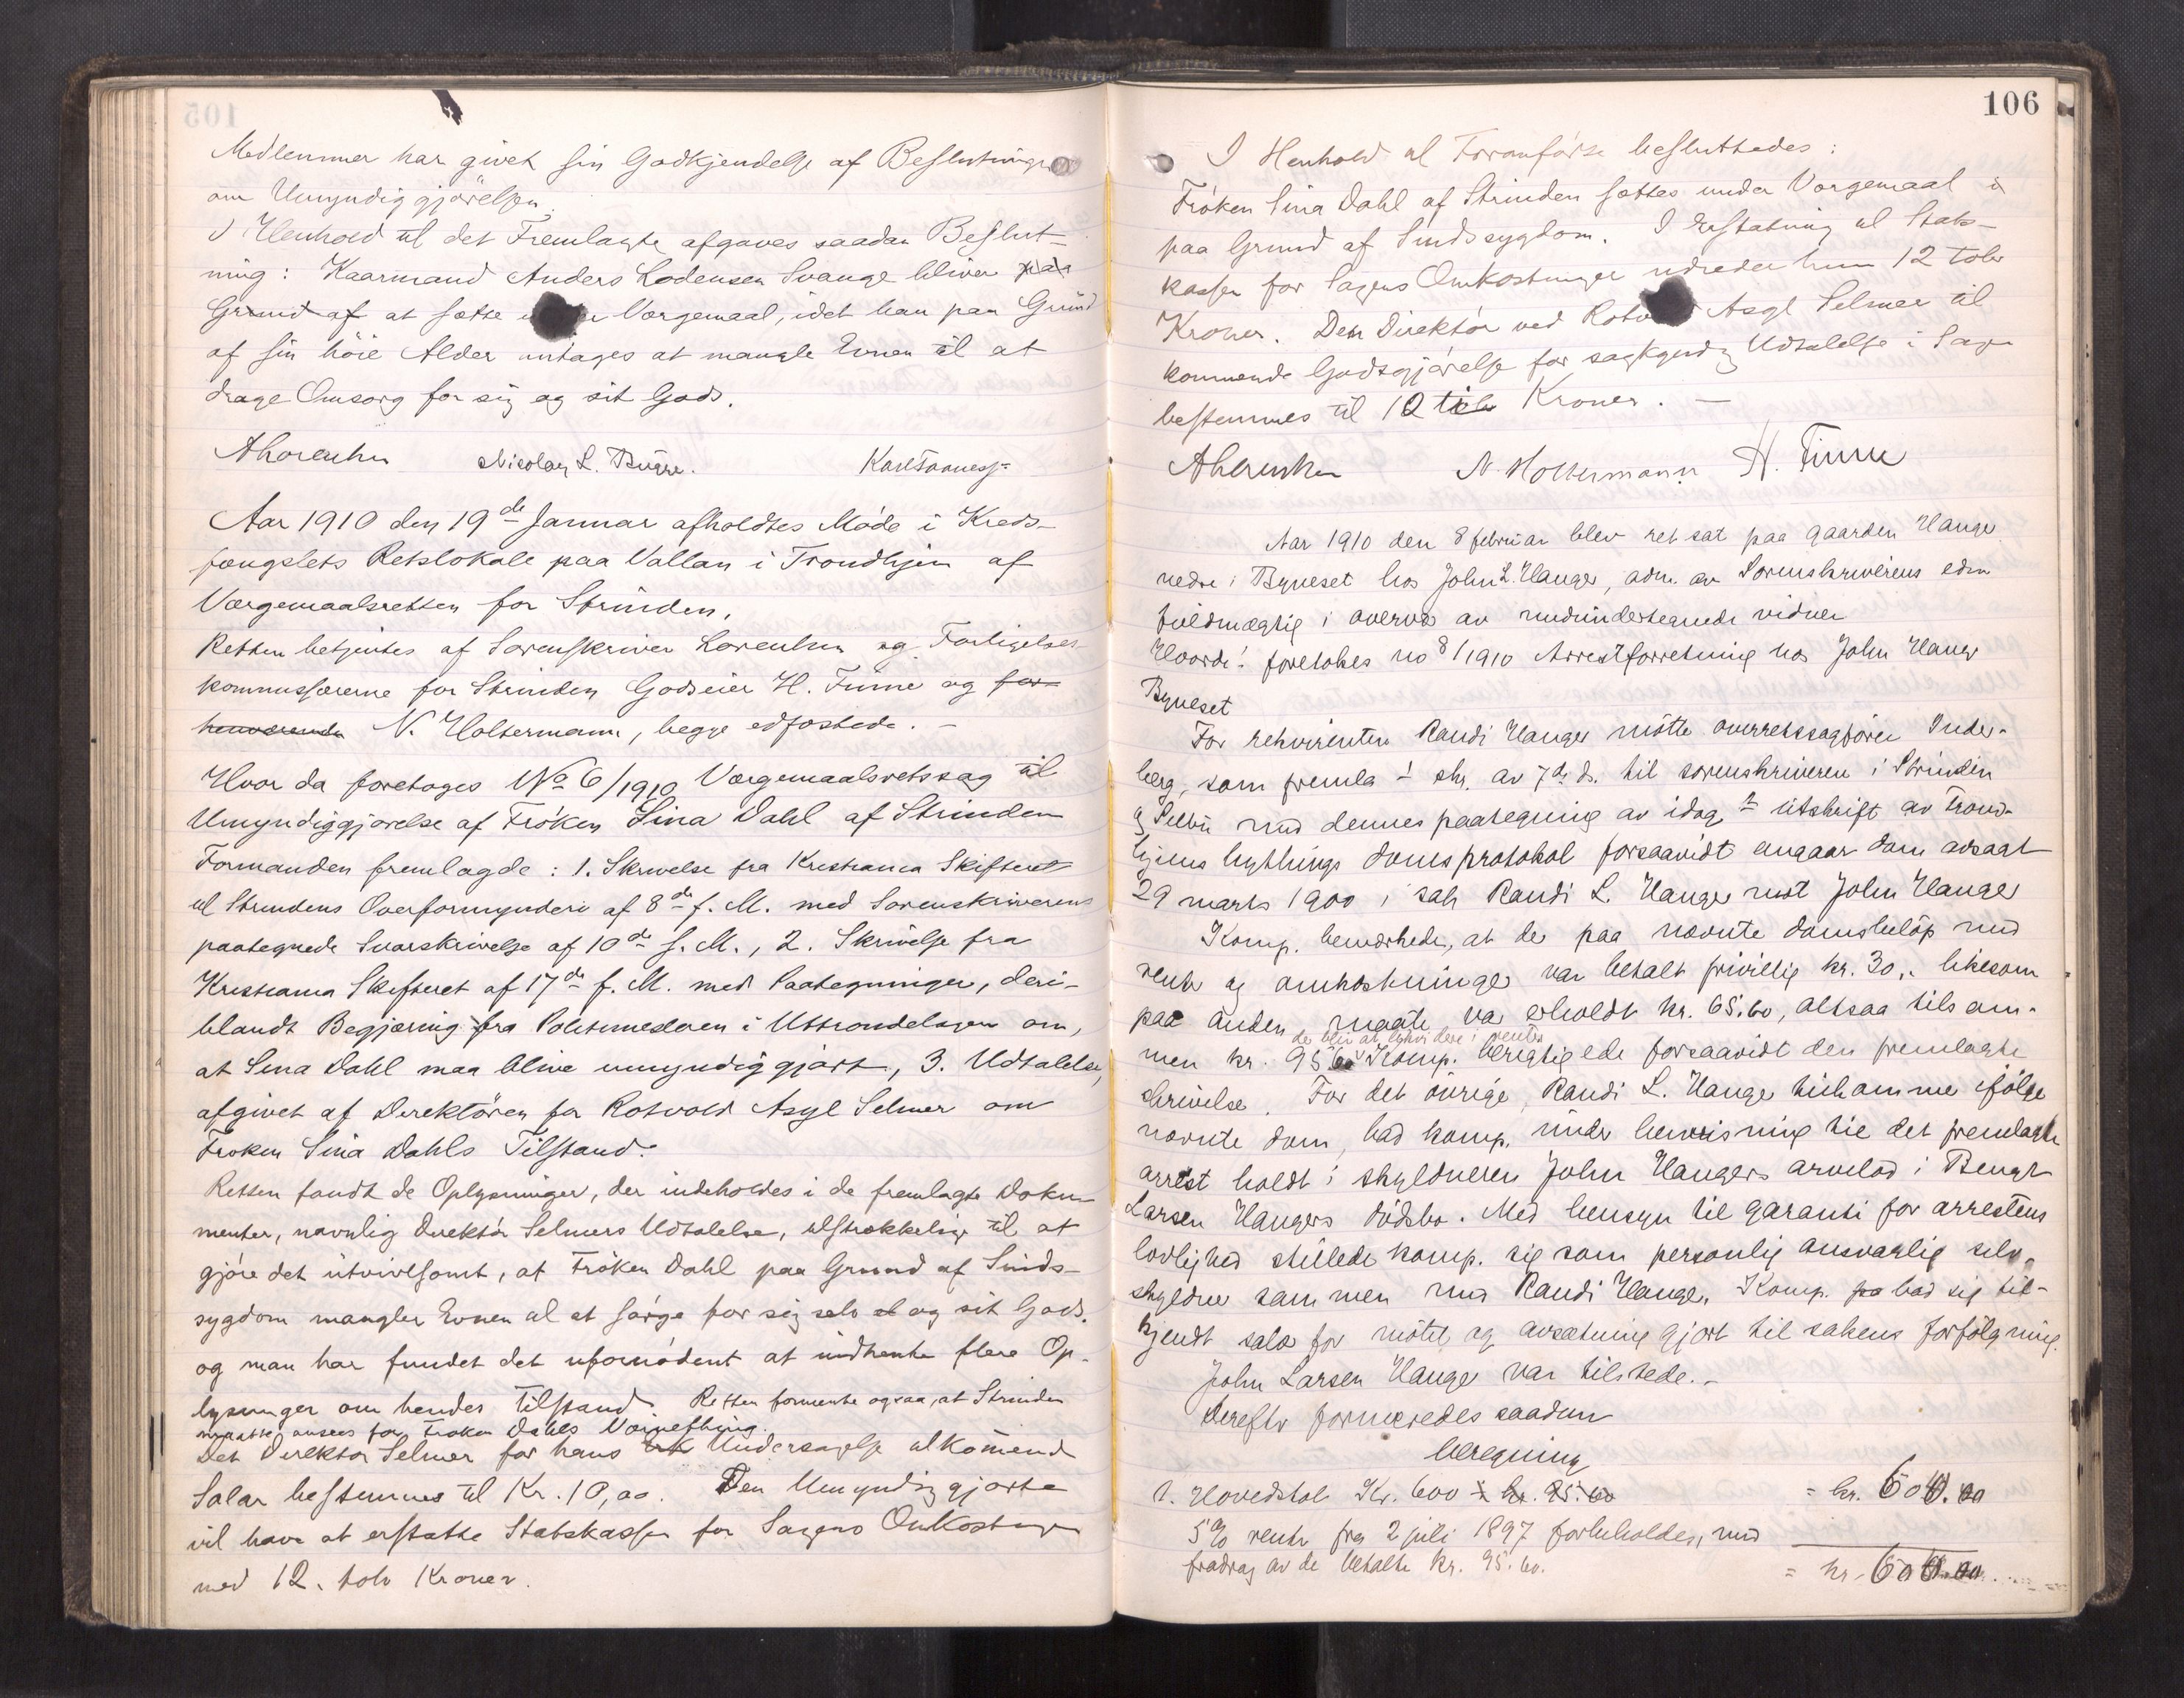 Medlemmer har givet sin Godkjendelse af Beslutningen
om Umyndiggjörelsen.
I Henhold til det Fremlagte afgaves saadan Beslut-
ning: Kaarmand Anders Lodensen Svange bliver paa
Grund af at sætte Værgemaal, idet han paa Grund
af sin höie Alder antages at mangle Evnen til at
drage Omsorg for sig og sit Gods.
Nicolay L. Bügge.
Aar 1910 den 19de Januar afholdtes Möde i Kreds-
fængslets Retslokale paa Vollan i Trondhjem af
Værgemaalsretten for Strinden.
Retten betjentes af Sorenskriver Lorentzen og Forligelses-
kommissærerne for Strinden Godseier H. Finne og for-
henværende N. Holtermann, begge edfæstede. –
Hvor da foretoges No 6/1910 Værgemaalsretssag til
Umyndiggjörelse af Fröken Sina Dahl af Strinden
Formanden fremlagde: 1. Skrivelse fra Kristiania Skifteret
til Strindens Overformynderi af 8de f. M. med Sorenskriverens
paategnede Svarskrivelse af 10de s. M., 2. Skrivelse fra
Kristiania Skifteret af 17de f. M. med Paategninger, deri-
blandt Begjæring fra Politimesteren i Uttrondelagen om,
at Sina Dahl maa blive umyndiggjort, 3. Udtalelse,
afgivet af Direktören for Rotvold Asyl Selmer om
Fröken Sina Dahls Tilstand.
Retten fandt de Oplysninger, der indeholdes i de fremlagte Doku-
menter, navnlig Direktör Selmers Udtalelse, tilstrækkelig til at
gjöre det utvivlsomt, at Fröken Dahl paa Grund af Sinds-
sygdom mangler Evnen til at sörge for sig selv og sit Gods.
og man har fundet det ufornödent at indhente flere Op-
lysninger om hendes Tilstand. Retten formente ogsaa, at Strinden
maatte ansees for Fröken Dahls Værneting.
Det Direktör Selmer for hans Undersögelse tilkommende
Salær bestemmes til Kr. 10,00. Den Umyndiggjorte
vil have at erstatte Statskassen for Sagens Omkostninger
med 12. tolv Kroner.
106
I Henhold til Foranförte besluttedes:
Fröken Sina Dahl af Strinden sættes under Værgemaal
paa Grund af Sindssygdom. I Erstatning til Stats-
kassen for Sagens Omkostninger udreder hun 12 tolv
Kroner. Den Direktör ved Asyl Selmer til
kommende Godtgjörelse for sagkyndig Udtalelse i Sagen
bestemmes til 10 ti Kroner. –
N. Holtermann H. Finne
Aar 1910 den 8 februar blev ret sat paa gaarden Hangr
nedre i Byneset hos John L. Hanger, adm. av Sorenskriverens edsv
fuldmægtig i overvær av medundertegnede vidner
Hvorda! foretokes no 8/1910 Arrestforretning hos John Hanger
Byneset
For rekvirenten Randi Hanger mötte overretssagförer Inder-
berg, som fremla 1 skr. av 7de ds. til sorenskriveren i Strinden
og Selbu med dennes paategning av idag 2 utskrift av Trond-
hjems bythings domsprotokol forsaavidt angaar dom avsagt
29 marts 1900 i sak Randi L. Hanger mot John Hanger
Komp. bemerkede, at der paa nævnte domsbelöp med
rente og omkostninger var betalt frivillig kr. 30,- likesom
paa anden maate var erholdt kr. 65.60, altsaa tilsam-
der blir at likvidere i renter
men kr. 95.60 Komp. berigtigede forsaavidt den fremlagte
skrivelse. For det övrige, Randi L. Hanger tilkomme ifölge
nævnte dom, bad komp. under henvisning til det fremlagte
arrest holdt i skyldneren John Hangers arvelod i Bengt
Larsen Hangers dödsbo. Med hensyn til garanti for arrestens
lovlighed stillede komp. sig som personlig ansvarlig selv-
skyldner sammen med Randi Hanger. Komp. bad sig til-
kjendt salær for mötet og avsætning gjort til sakens forfölgning.
John Larsen Hanger var tilstede. –
Derefter formeredes saadan
beregning
1. Hovedstol Kr. 600 ÷ kr. 95.60 = kr. 600.00
5% rente fra 2 juli 1897 forbeholdes, med
fradrag av de betalte kr. 95.60. = kr. 600.00